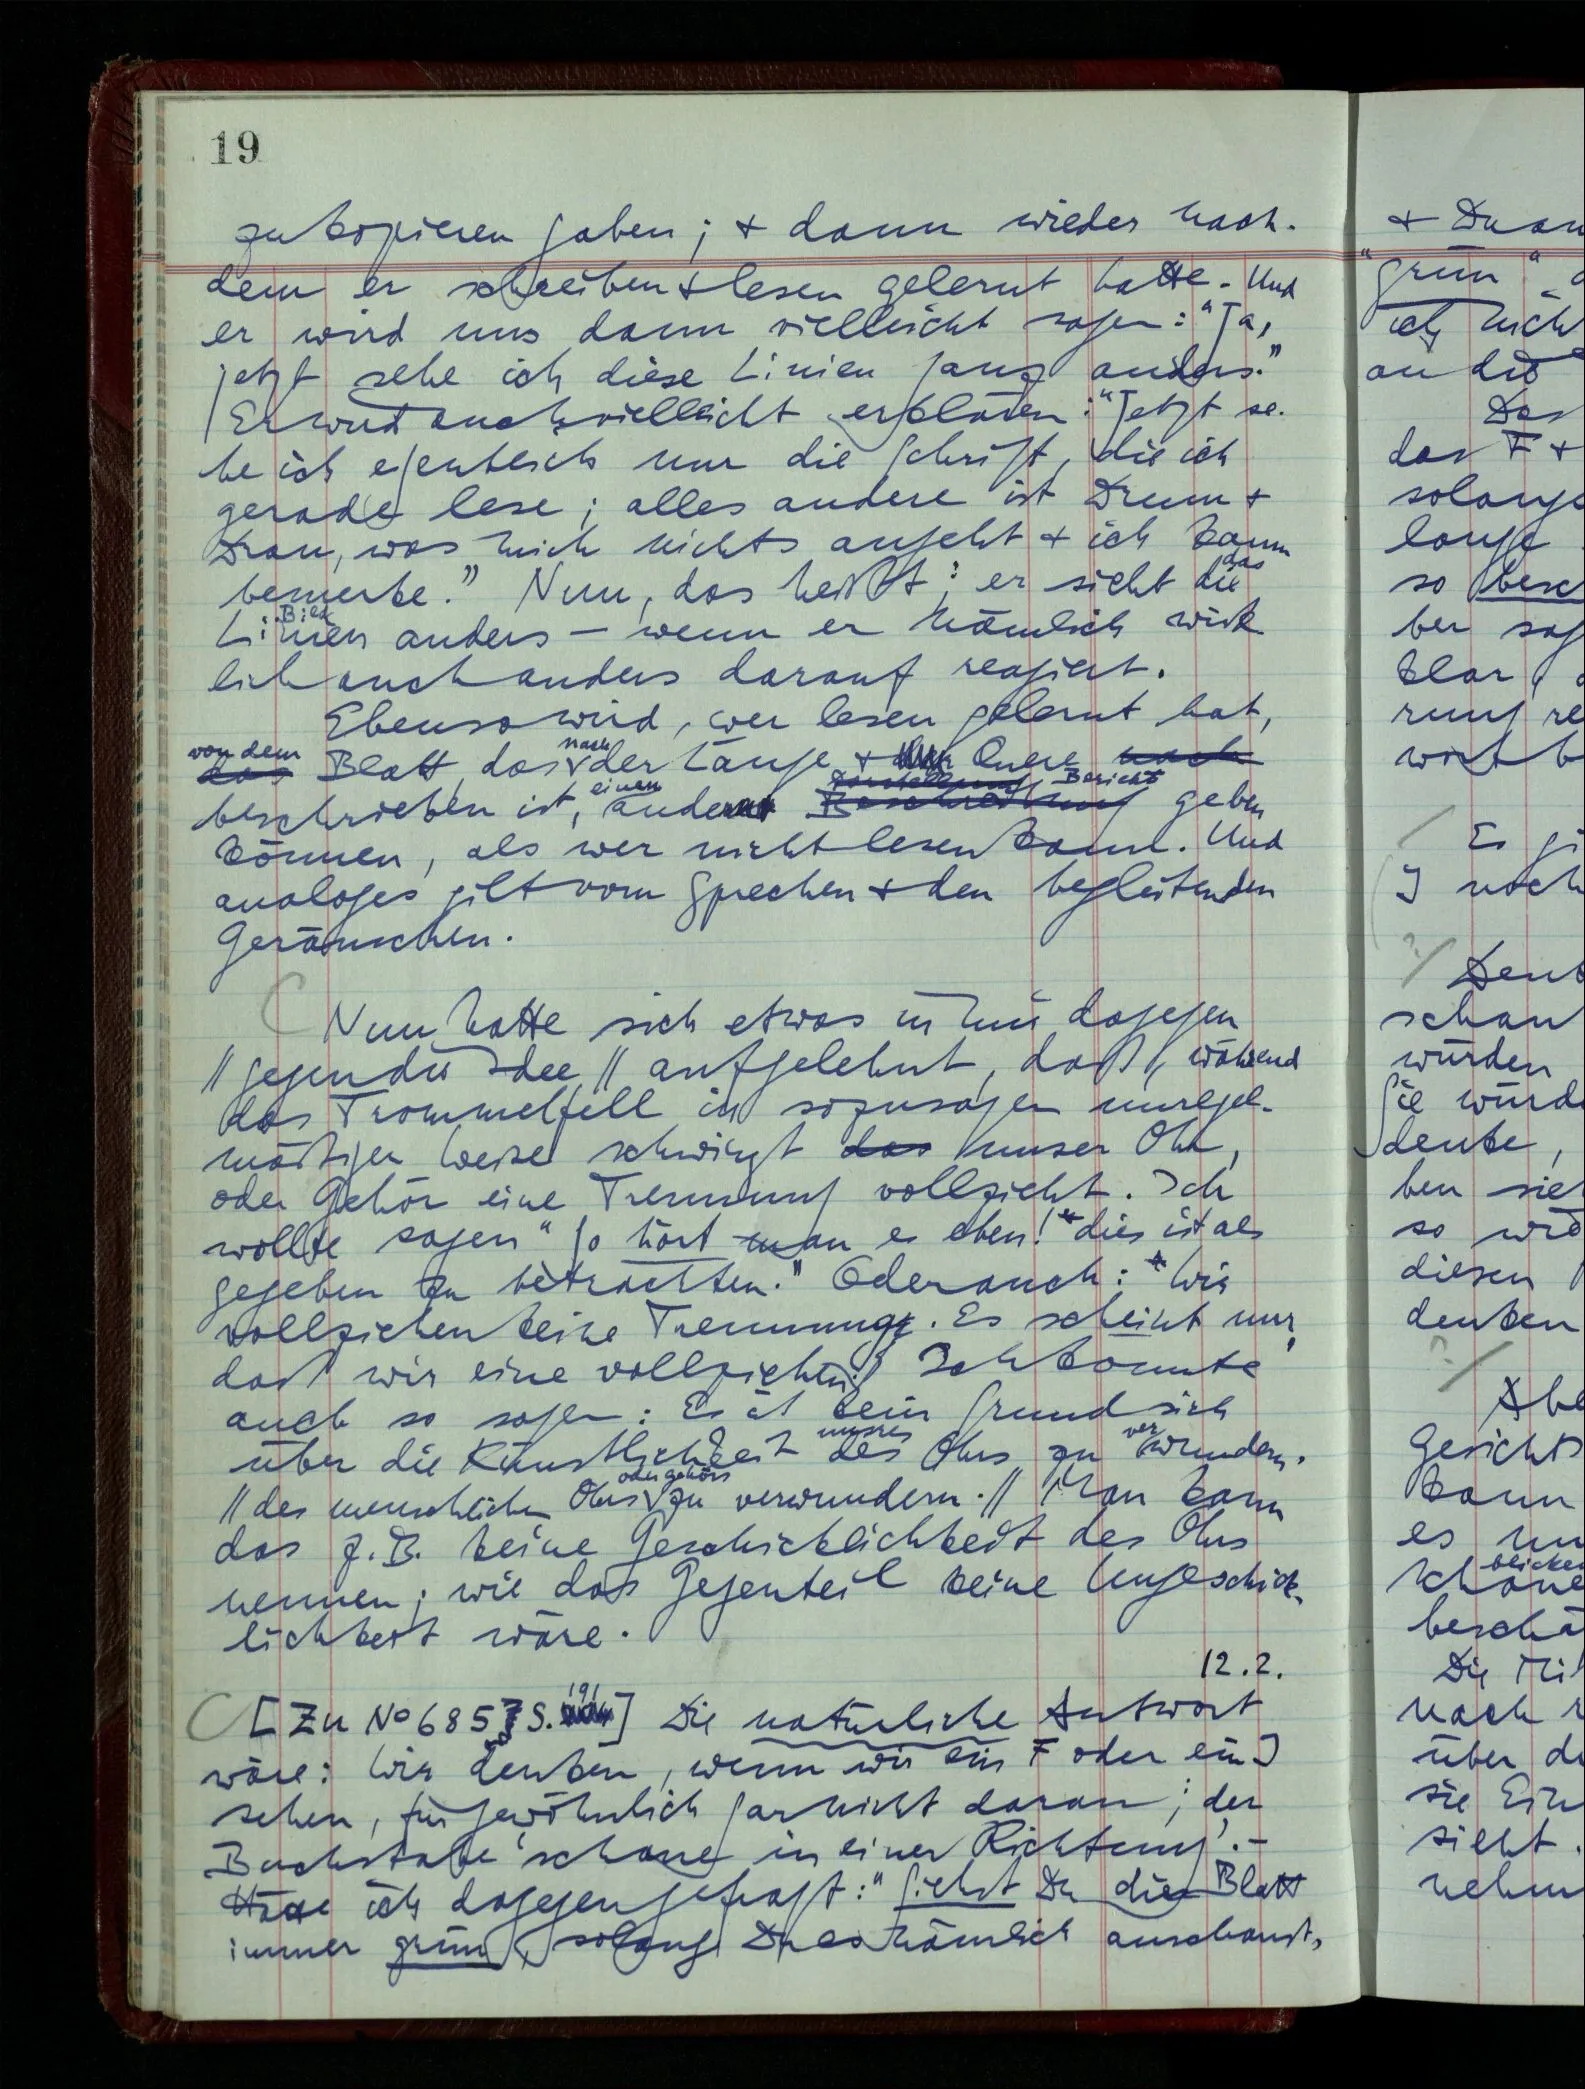 19
zu kopieren gaben; + dann wieder nach-
dem er schreiben + lesen gelernt hatte. Und
er wird uns dann vielleicht sagen: "Ja,
jetzt sehe ich diese Linien ganz anders."
Er wird auch vielleicht erklären: "Jetzt se-
he ich eigentlich nur die Schrift, die ich
gerade lese; alles andere ist Drum +
Dran, was mich nichts angeht + ich kaum
bemerke." Nun, das heißt: er sieht die
das
Bild
Linien anders — wenn er nämlich wirk
lich auch anders darauf reagiert.
Ebenso wird, wer lesen gelernt hat,
von dem nach
das Blatt, das der Länge + Quere nach
einen Darstellung Bericht
beschrieben ist, andern Beschreibung geben
können, als wer nicht lesen kann. Und
analoges gilt vom Sprechen + den begleitenden
Geräuschen.
Nun hatte sich etwas in mir dagegen
// gegen die Idee // aufgelehnt, daß, während
das Trommelfell in sozusagen unregel-
mäßiger Weise schwingt das unser Ohr,
oder Gehör eine Trennung vollzieht. Ich
wollte sagen "So hört man es eben! dies ist als
gegeben zu betrachten." Oder auch: "Wir
vollziehen keine Trennung. Es scheint nur,
daß wir eine vollziehen." Ich konnte
auch so sagen: Es ist kein Grund sich
unsres ver
über die Künstlichkeit des Ohrs zu wundern.
oder Gehörs
// des menschlichen Ohrs zu verwundern. // Man kann
das z.B. keine Geschicklichkeit des Ohrs
nennen; wie das Gegenteil keine Ungeschick-
lichkeit wäre.
12.2.
191
[Zu No 685, S. ] Die natürliche Antwort
wäre: Wir denken, wenn wir ein F oder ein J
sehen, für gewöhnlich gar nicht daran, 'der
Buchstabe schaue in einer Richtung'. –
Hätte ich dagegen gefragt: "Siehst Du dies Blatt
immer grün, solang Du es nämlich anschaust,
+ Daran
"grün"
ich nich
an die
Das
das F +
solange
lange
so besc
ber sag
klar,
rung re
wirk
Es gi
J noch
Denk
schau
würden
Sie würde
denke,
ben sie
so wird
diesen
denken
Abe
Gesichts
kann
es
blicken
beschä
Die
nach
über di
sie Ein
sieht.
nehm